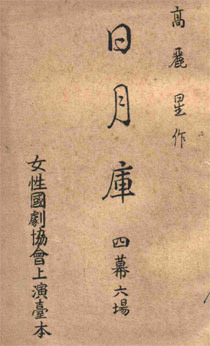 高麗星作
日月庫
四幕六場
女性國劇協會上演臺本